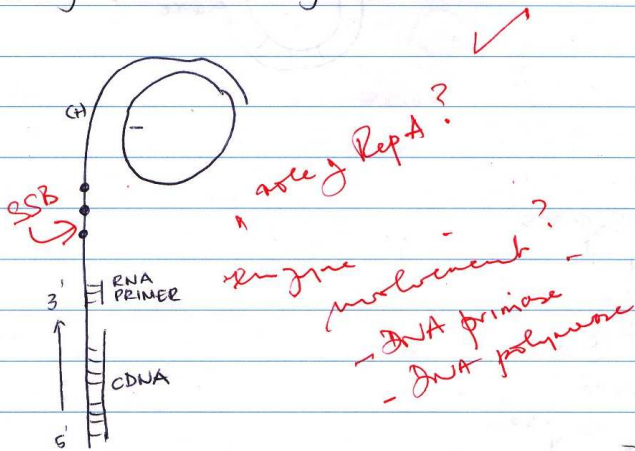 (+)
–
SSB
role of RepA?
enzyme involvement?
- DNA primase
- DNA polymerase
3'
RNA
PRIMER
CDNA
5'